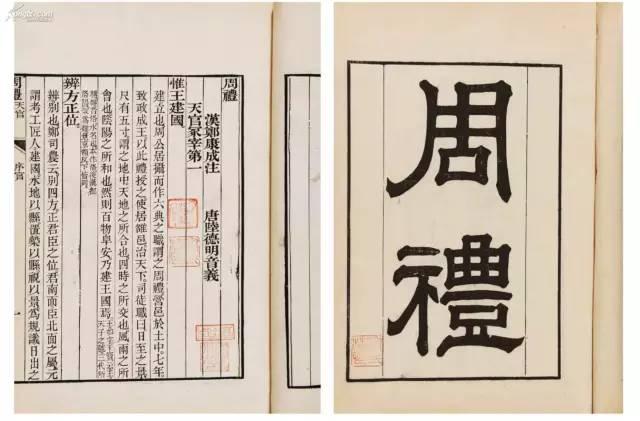 周禮
周禮
漢鄭康成注 唐陸德明音義
天官冢宰第一
惟王建國
建立也周公居攝而作六典之職謂之周禮營邑於土中七年
致政成王以此禮授之使居雒邑治天下司徒職曰日至之景
尺有五寸謂之地中天地之所合也四時之所交也風雨之所
會也陰陽之所和也然則百物阜安乃建王國焉
辨方正位
辨別也鄭司農云別四方正君臣之位君南面臣北面之屬元
謂考工匠人建國水地以縣置槷以縣眡以景爲規識日出之
周禮 天官 序官